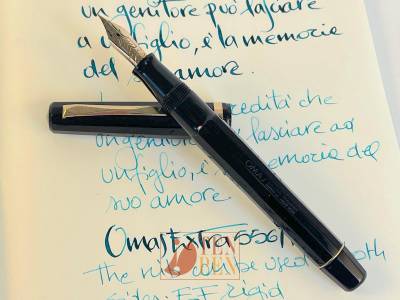 un genitore può lasciare
a un figlio, è la memoria
del amore.
eredità che
un genitore lasciare ad
un figlio, è memoria del
suo amore
Omas Extra 556/
PEN
The nib can be used both
sides: E.F. rigid